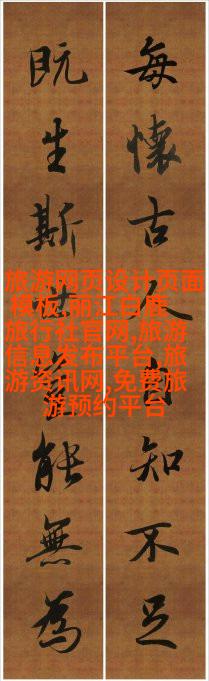 每懷古人自知不足
既生斯能無為
旅游网页设计页面
模板,丽江白鹿
旅行社官网,旅游
信息发布平台,旅
游资讯网,免费旅
游预约平台